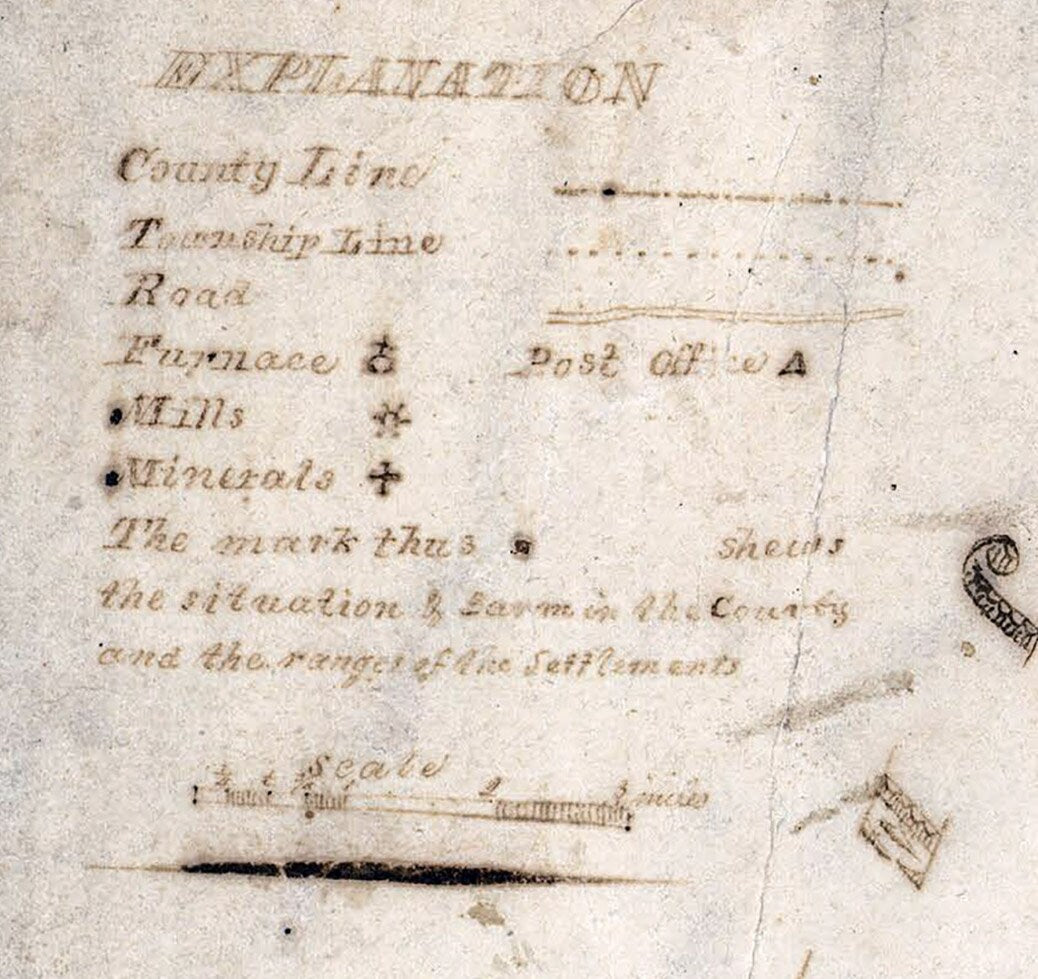 EXPLANATION
County Line
Township Line
Road
Furnace Post Office
Mills
Minerals
The mark thus shews
the situation & Farm in the County
and the ranges of the Settlements
Scale
miles